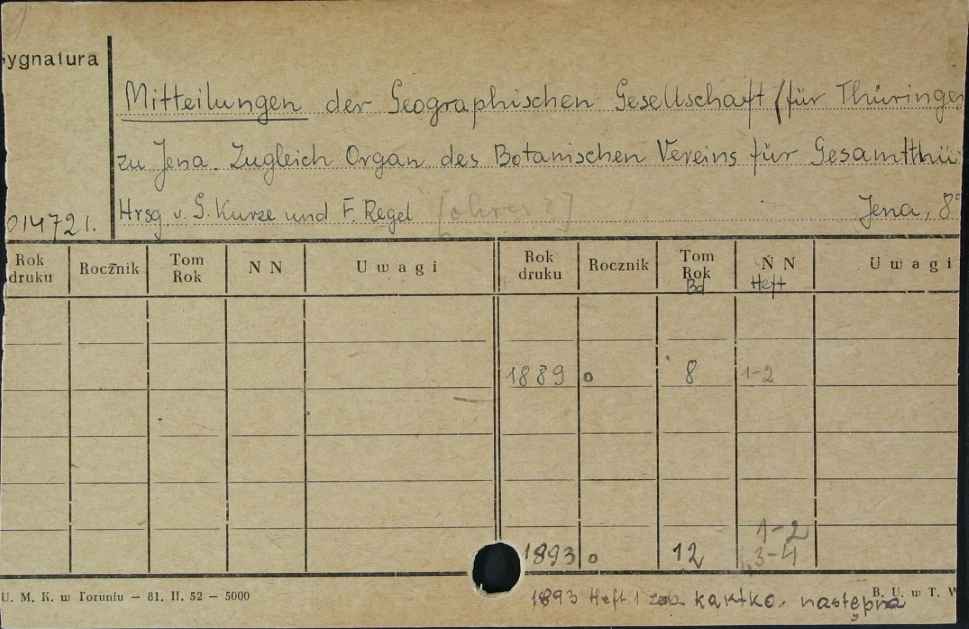 Sygnatura
Mitteilungen der Geographischen Gesellschaft (für Thüringen
zu Jena. Zugleich Organ des Botanischen Vereins für Gesamtthü
014721. Hrsg. v. G. Kurze und F. Regel Jena, 8°
Rok druku Rocznik Tom Rok N N Uwagi Rok druku Rocznik Tom Rok Bd N N Heft Uwagi
1889 o 8 1-2
1-2
1893 o 12 3-4
U. M. K. w Toruniu – 81. II. 52 – 5000 B. U. w T. W
1893 Heft 1 zob. kartkę następną